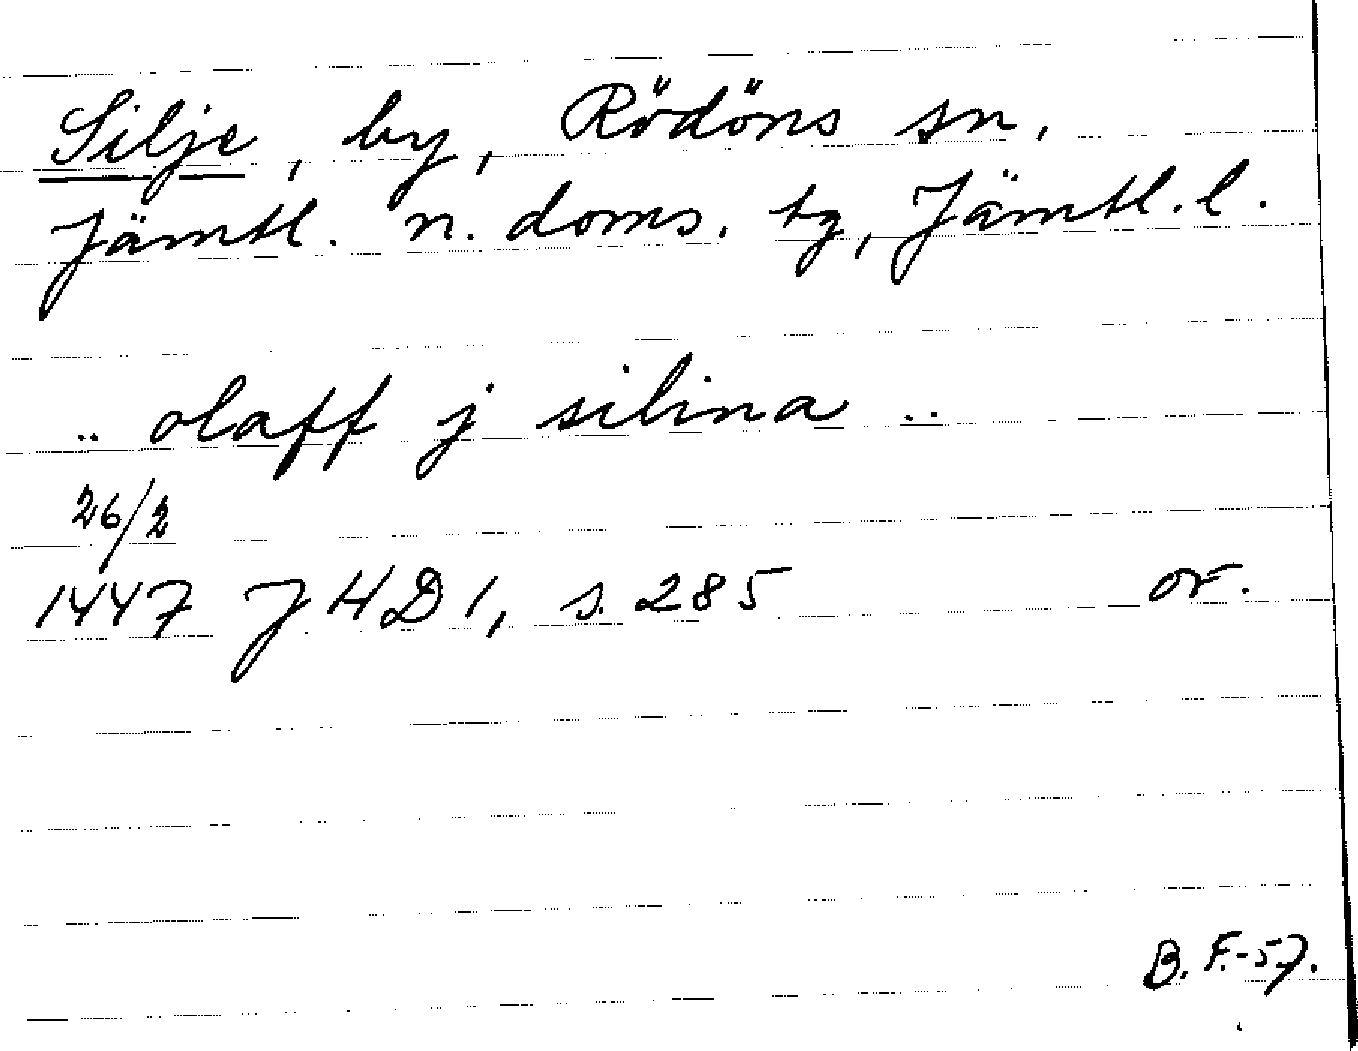 Silje, by, Rödöns sn.
Jämtl. n. doms. tg, Jämtl. l.
.. olaff j silina ..
26/2
1447 JHD 1, s. 285 or.
B. F.-57.